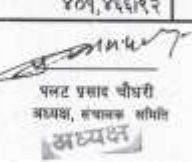 ४०१,४६६।१२
पलट प्रसाद चौधरी
अध्यक्ष, संचालक समिति
अध्यक्ष